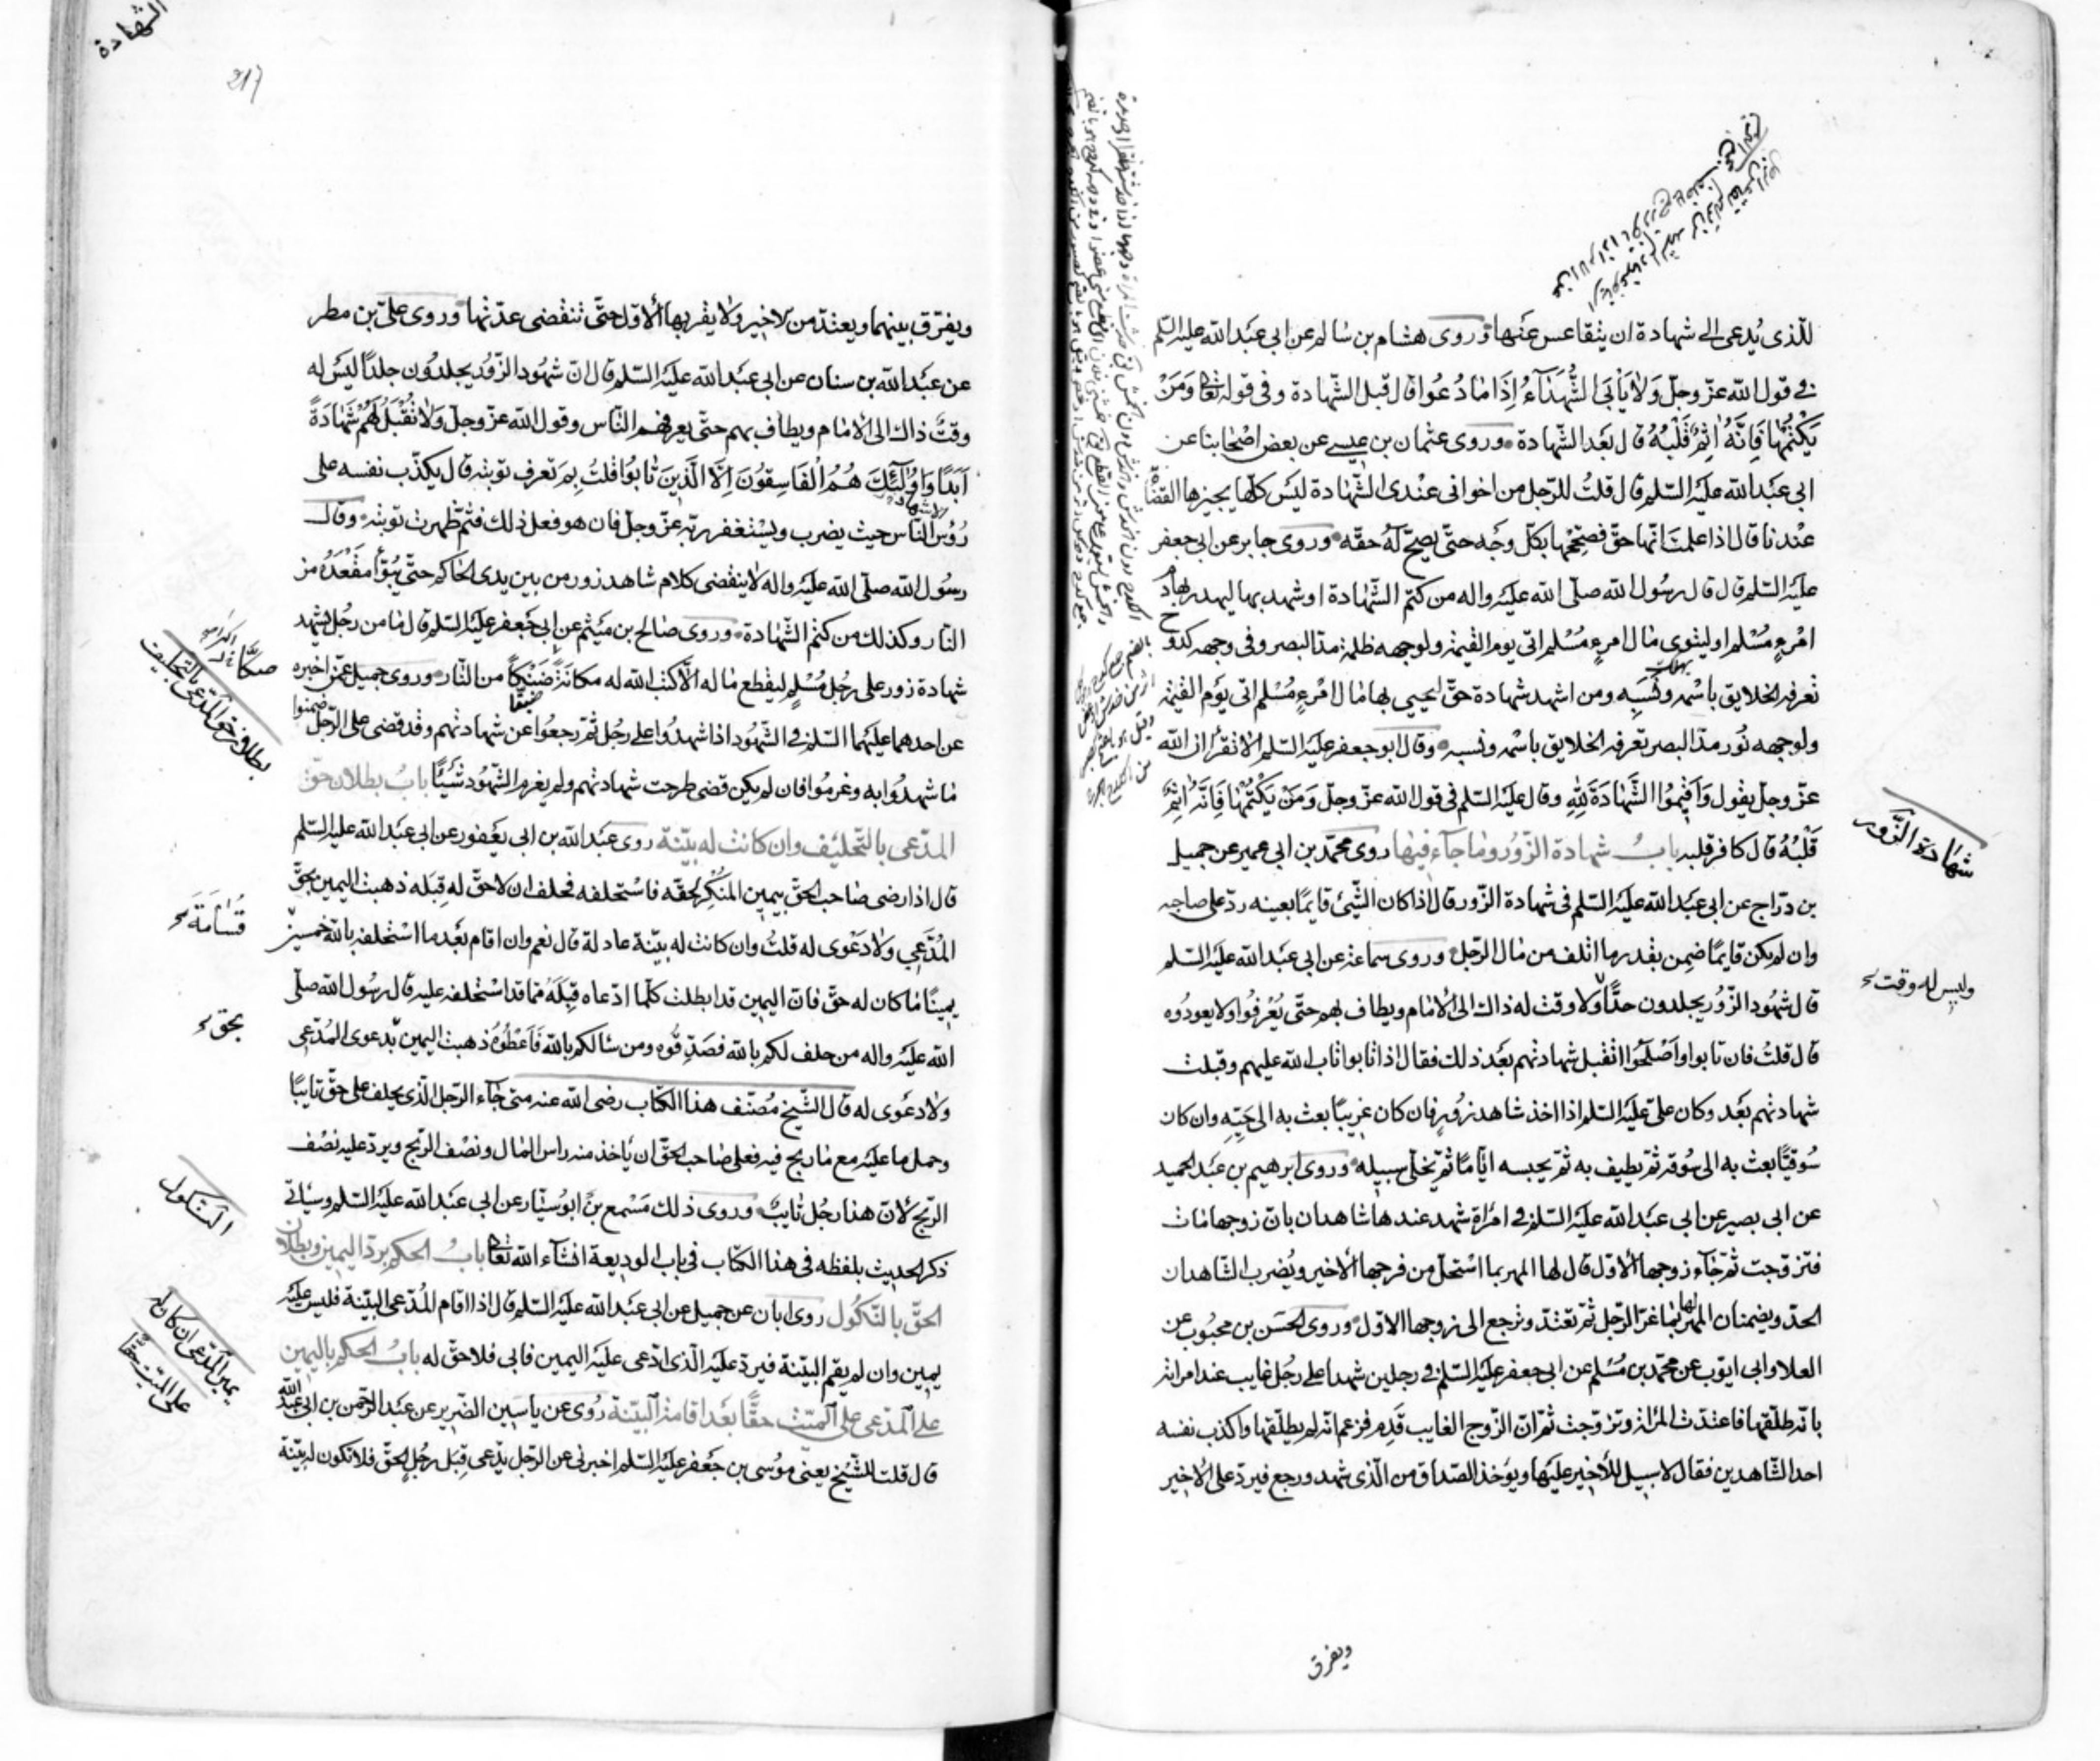 للّذی یُدعی الی شهادة ان یتقاعس عنها وروی هشام بن سالم عن ابی عبد الله علیه السّلم
فی قول الله عزّ وجلّ وَلَا یَأْبَ الشُّهَدَآءُ إِذَا مَا دُعُوا قال قبل الشّهادة وفی قوله تعالی وَمَنْ
یَکْتُمْهَا فَإِنَّهُ اٰثِمٌ قَلْبُهُ قال بعد الشّهادة وروی عثمان بن عیسی عن بعض اصحابنا عن
ابی عبد الله علیه السّلم قال قلتُ للرّجل من اخوانی عندی الشّهادة لیس کلّها یجیزها القضاة
عندنا قال اذا علمتَ انّها حقّ فصحّحها بکلّ وجه حتّی یصحّ له حقّه وروی جابر عن ابی جعفر
علیه السّلم قال قال رسُول الله صلّی الله علیه واله من کتم الشّهادة او شهد بها لیهدر بها دم
امْرءٍ مُسْلم او لیتوی مال امرءٍ مُسْلم اتی یوم القیٰمة ولوجهه ظلمة مدّ البصر وفی وجهه کدوح
تعرفه الخلایق باسْمه ونَسَبِه ومن اشهد شهادة حقّ لیحیی بها مال امْرءٍ مُسْلم اتی یوم القیٰمة
ولوجهه نُور مدّ البصر تعرفه الخلایق باسْمه ونسبه وقال ابو جعفر علیه السّلم الا تقرأ ان الله
عزّ وجلّ یقول وَأَقِیمُوا الشَّهَادَةَ لِلّٰهِ وقال علیه السّلم فی قول الله عزّ وجلّ وَمَنْ یَکْتُمْهَا فَإِنَّهُ اٰثِمٌ
قَلْبُهُ قال کافر قلبه بابُ شهادة الزّور وما جآء فیها روی محمّد بن ابی عمیر عن جمیل
بن درّاج عن ابی عبد الله علیه السّلم فی شهادة الزّور قال اذا کان الشّیئ قایمًا بعینه ردّ علی صاحبه
وان لم یکن قایمًا ضمن بقدر ما اتلف من مال الرّجل وروی سماعة عن ابی عبد الله علیه السّلم
قال شهُود الزّور یجلدون حدًّا ولا وقت له ذاك الی الامام ویطاف بهم حتّی یُعْرفُوا ولا یعودُوه
قال قلتُ فان تابوا واَصْلَحُوا اتقبل شهادتهم بعد ذلك فقال اذا تابوا تاب الله علیهم وقبلت
شهادتهم بعد وکان علیّ علیه السّلم اذا اخذ شاهد زُورٍ فان کان غریبًا بعث به الی حَیّه وان کان
سُوقیًّا بعث به الی سُوقه ثمّ یطیف به ثمّ یحبسه ایّامًا ثمّ یخلّی سبیله وروی ابرهیم بن عبد الحمید
عن ابی بصیر عن ابی عبد الله علیه السّلم فی امرأة شهد عندها شاهدان بانّ زوجها مات
فتزوّجت ثمّ جآء زوجها الاوّل قال لها المهر بما استحلّ من فرجها الاخیر ویُضرب الشّاهدان
الحدّ ویضمنان المهر لها بما غرّا الرّجل ثمّ تعتدّ وترجع الی زوجها الاوّل وروی الحَسَن بن محبُوب عن
العلا وابی ایّوب عن محمّد بن مُسْلم عن ابی جعفر علیه السّلم فی رجلین شهدا علی رجُل غایب عند امراته
بانّه طلّقها فاعتدّت المرأة وتزوّجت ثمّ انّ الزّوج الغایب قَدِم فزعم انّه لم یطلّقها واکذب نفسه
احد الشّاهدین فقال لا سبیل للأخیر علیها ویؤخذ الصّداق من الّذی شهد ورجع فیردّ علی الاخیر
شهادة الزّور
ولیس له وقت
ویفرق
الشهادة
217
ویفرّق بینهما ویعتدّ من الاخیر ولا یقربها الاوّل حتّی تنقضی عدّتها وروی علیّ بن مطر
عن عبد الله بن سنان عن ابی عبد الله علیه السّلم قال انّ شهُود الزّور یجلدُون جلدًا لیس له
وقتٌ ذاك الی الامام ویطاف بهم حتّی یعرفهم النّاس وقول الله عزّ وجلّ وَلَا تَقْبَلُوا لَهُمْ شَهَادَةً
أَبَدًا وَأُولٰٓئِكَ هُمُ الْفَاسِقُونَ اِلَّا الَّذِینَ تَابُوا قلتُ بِمَ تعرف توبته قال یکذّب نفسه علی
رُؤس النّاس حیث یضرب ویستغفر ربّه عزّ وجلّ فان هو فعل ذلك فثمّ ظهرت توبته وقال
رسُول الله صلّی الله علیه واله لا ینقضی کلام شاهد زور من بین یدی الحاکم حتّی یُبوّأ مقْعَدُه من
النار وکذلك من کتم الشّهادة وروی صالح بن میثم عن ابی جعفر علیه السّلم قال ما من رجُل یشهد
شهادة زور علی رجُل مُسْلمٍ لیقطع ماله الّا کتب الله له مکانَه ضَنْکًا من النّار وروی جمیل عمّن اخبره
عن احدهما علیهما السّلم فی الشّهود اذا شهدُوا علی رجُل ثمّ رجعُوا عن شهادتهم وقد قضی علی الرّجل ضمنوا
ما شهدُوا به وغرمُوا فان لم یکن قضی طرحت شهادتهم ولم یغرم الشّهود شیئًا بابُ بطلان حقّ
المدّعی بالتّحلیف وان کانت له بیّنة روی عبد الله بن ابی یعفور عن ابی عبد الله علیه السّلم
قال اذا رضی صاحب الحقّ بیمین المنْکِر لحقّه فاستحلفه فحلف ان لا حقّ له قِبَله ذهبت الیمین بحقّ
المُدَّعی ولا دعْوی له قلتُ وان کانت له بیّنة عادلة قال نعم وان اقام بعد ما استحلفه بالله خمسین
یمینًا ما کان له حقّ فانّ الیمین قد ابطلت کلّما ادّعاه قِبَلَهُ ممّا قد استحلفه علیه قال رسُول الله صلّی
الله علیه واله من حلف لکم بالله فصَدِّقُوه ومن سالکم بالله فَاَعْطُوهُ ذهبت الیمین بدعوی المُدّعی
ولا دعْوی له قال الشّیخ مُصنّف هذا الکتاب رضی الله عنه متی جآء الرّجل الّذی یحلف علی حقّ تایبًا
وحمل ما علیه مع ما ربح فیه فعلی صاحب الحقّ ان یاخذ منه راس المال ونصْف الرّبح ویردّ علیه نصْف
الرّبح لأنّ هذا رجُل تایبٌ وروی ذلك مَسْمع بن ابو سیّار عن ابی عبد الله علیه السّلم وسیاتی
ذکر الحدیث بلفظه فی هذا الکتاب فی باب الودیعة انشآء الله تعالی بابُ الحکم بردّ الیمین وبطلان
الحقّ بالنّکُول روی ابان عن جمیل عن ابی عبد الله علیه السّلم قال اذا اقام المُدّعی البیّنة فلیس علیه
یمین وان لم یقم البیّنة فردّ علیه الّذی ادّعی علیه الیمین فابی فلا حقّ له بابُ الحکم بالیمین
علی المدّعی علی المیّت حقًّا بعد اقامة البیّنة رُوی عن یاسین الضّریر عن عبد الرّحمن بن ابی عبد الله
قال قلت للشّیخ یعنی موُسی بن جعفر علیه السّلم اخبرنی عن الرّجل یدّعی قِبَل رجُلٍ الحقّ فلا تکون له بیّنة
بطلان حق المدّعی بالتحلیف
قَسَامَة
بحق
النّکول
یمین المدّعی ان کان له
علی المیّت حقّا